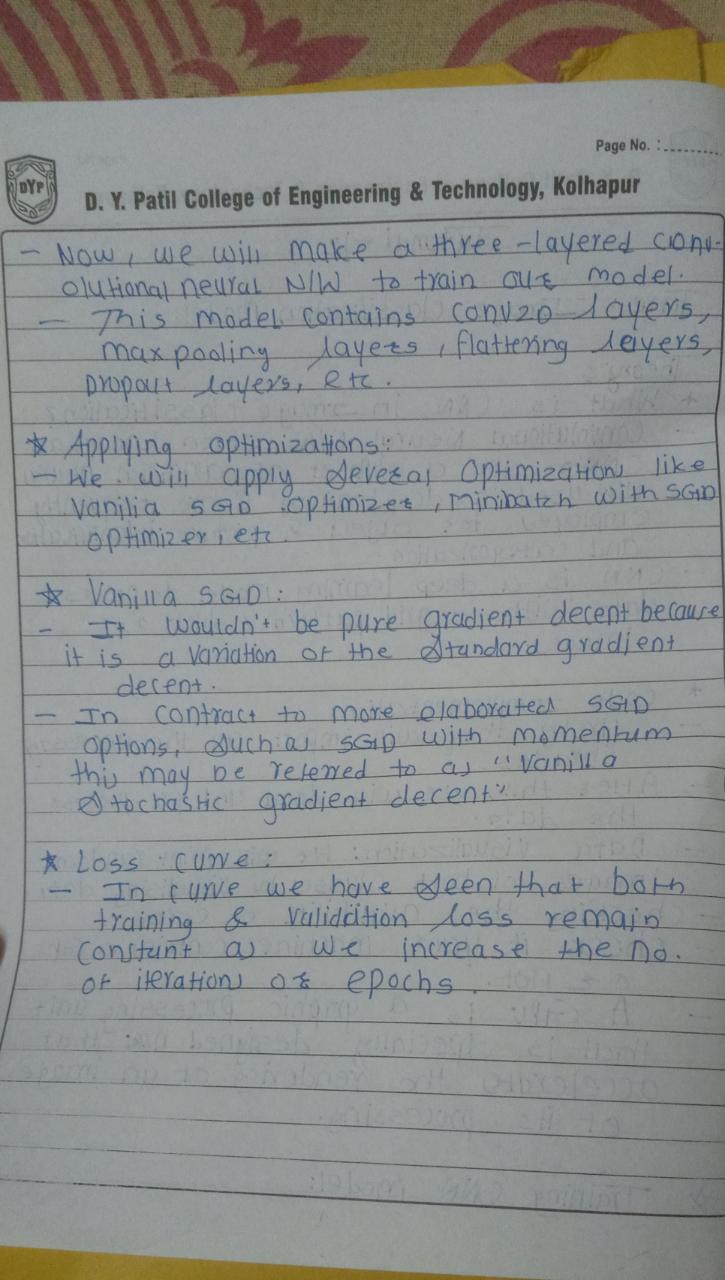 Page No. :..........
DYP
D. Y. Patil College of Engineering & Technology, Kolhapur
- Now, we will make a three-layered conv-
olutional neural N/W to train our model.
- This model contains conv2D layers,
max pooling layers, flattering layers,
Dropout layers, etc.
* Applying optimizations:
- We will apply several Optimizations like
Vanilia SGD optimizer, Minibatch with SGD
optimizer, etc
* Vanilla SGD:
- It wouldn't be pure gradient decent because
it is a variation of the standard gradient
decent.
- In contract to more elaborated SGD
options, such as SGD with momentum
this may be referred to as "Vanilla
Stochastic gradient decent".
* Loss curve:
- In curve we have seen that both
training & validation loss remain
constant as we increase the no.
of iterations or epochs.